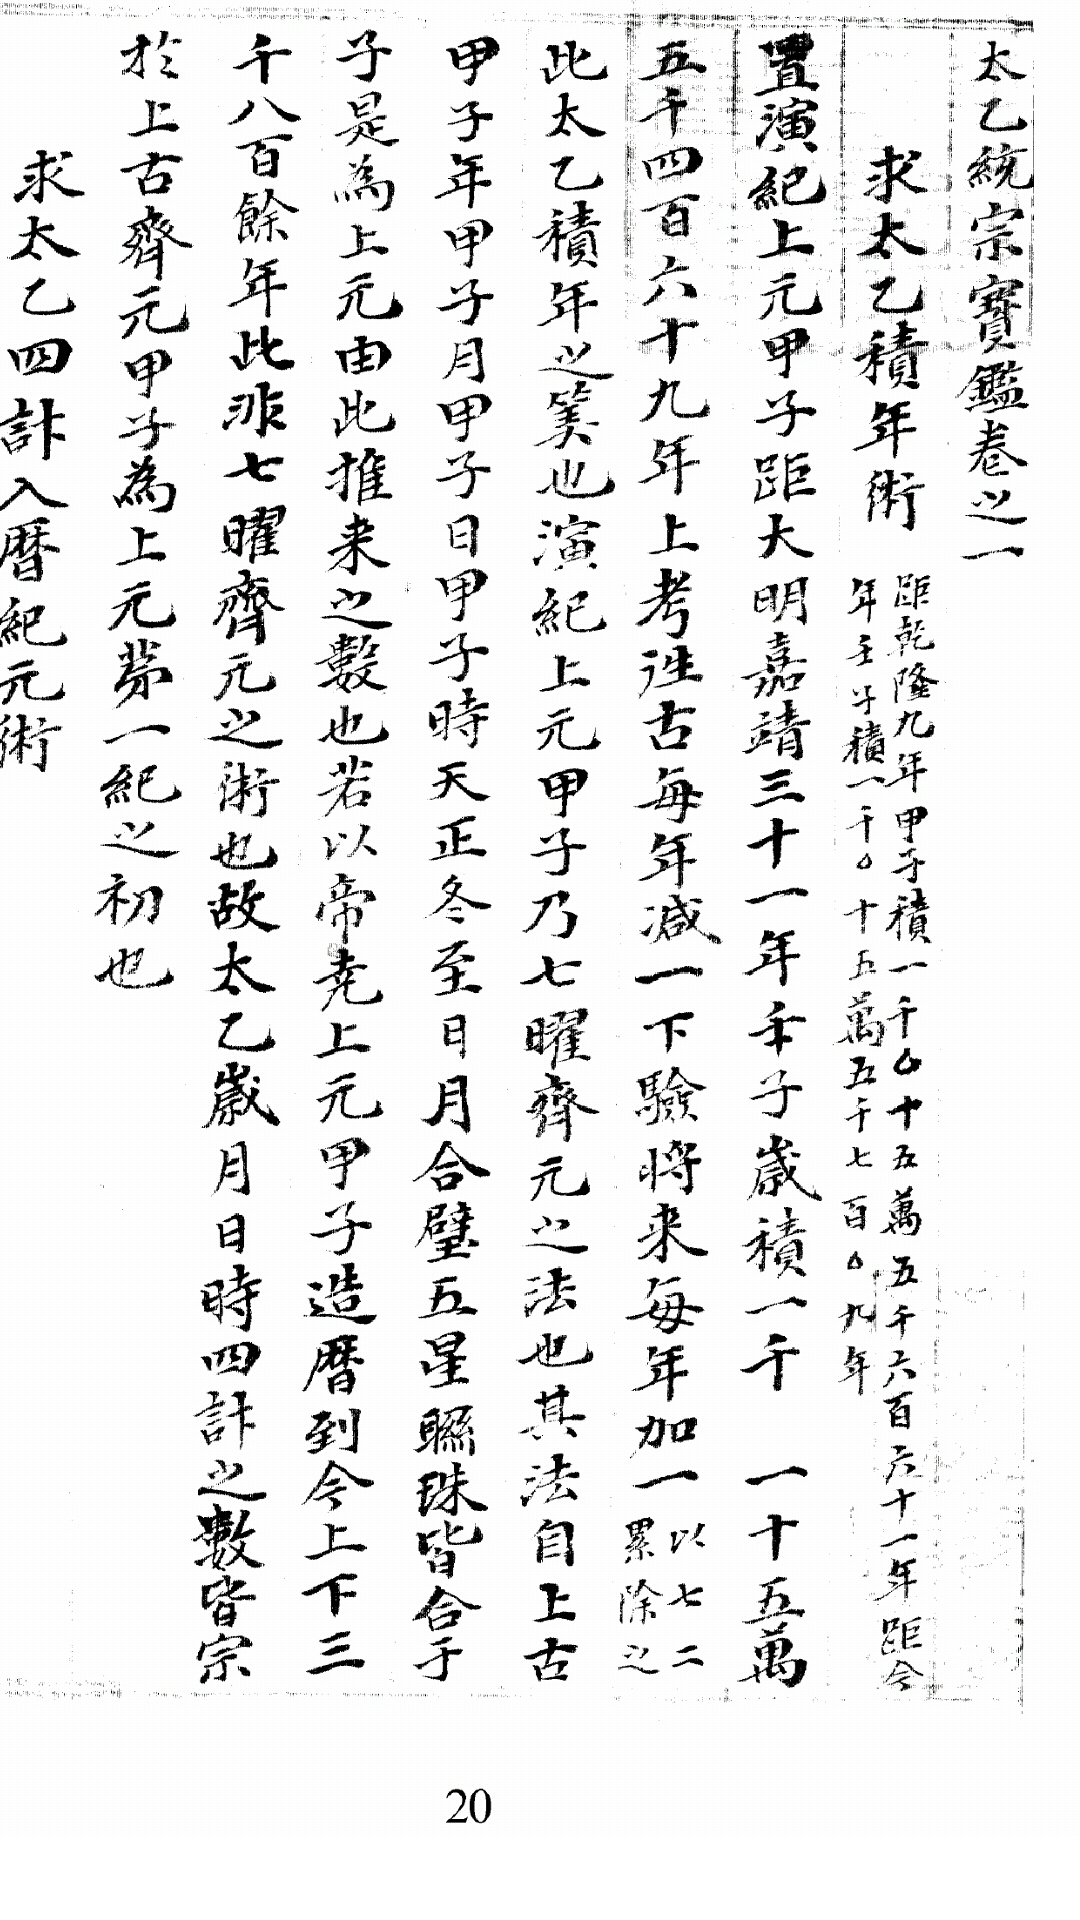 太乙統宗寶鑑卷之一
求太乙積年術
距乾隆九年甲子積一千〇十五萬五千六百六十一年距今
年壬子積一千〇十五萬五千七百〇九年
置演紀上元甲子距大明嘉靖三十一年年子歲積一千一十五萬
五千四百六十九年上考往古每年減一下驗將来每年加一
以七二
累除之
此太乙積年之筭也演紀上元甲子乃七曜齊元之法也其法自上古
甲子年甲子月甲子日甲子時天正冬至日月合璧五星聯珠皆合于
子是為上元由此推来之數也若以帝堯上元甲子造曆到今上下三
千八百餘年此非七曜齊元之術也故太乙歲月日時四計之數皆宗
於上古齊元甲子為上元苐一紀之初也
求太乙四計入曆紀元術
20